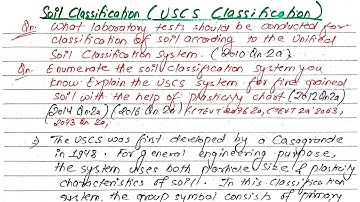 Soil Classification (USCS Classification)
Qn. What laboratory tests should be conducted for
classification of soil according to the Unified
Soil Classification System. (2010 Qn.2a)
Qn. Enumerate the soil classification system you
know. Explain the USCS system for fine grained
soil with the help of plasticity chart (2012 Qn2a)
(2014 Qn2a) (2016 Qn 2a)
⇒ The USCS was first developed by a Casagrande
in 1948. For general engineering purpose,
the system uses both particle size & plasticity
characteristics of soil. In this classification
system, the group symbol consists of primary